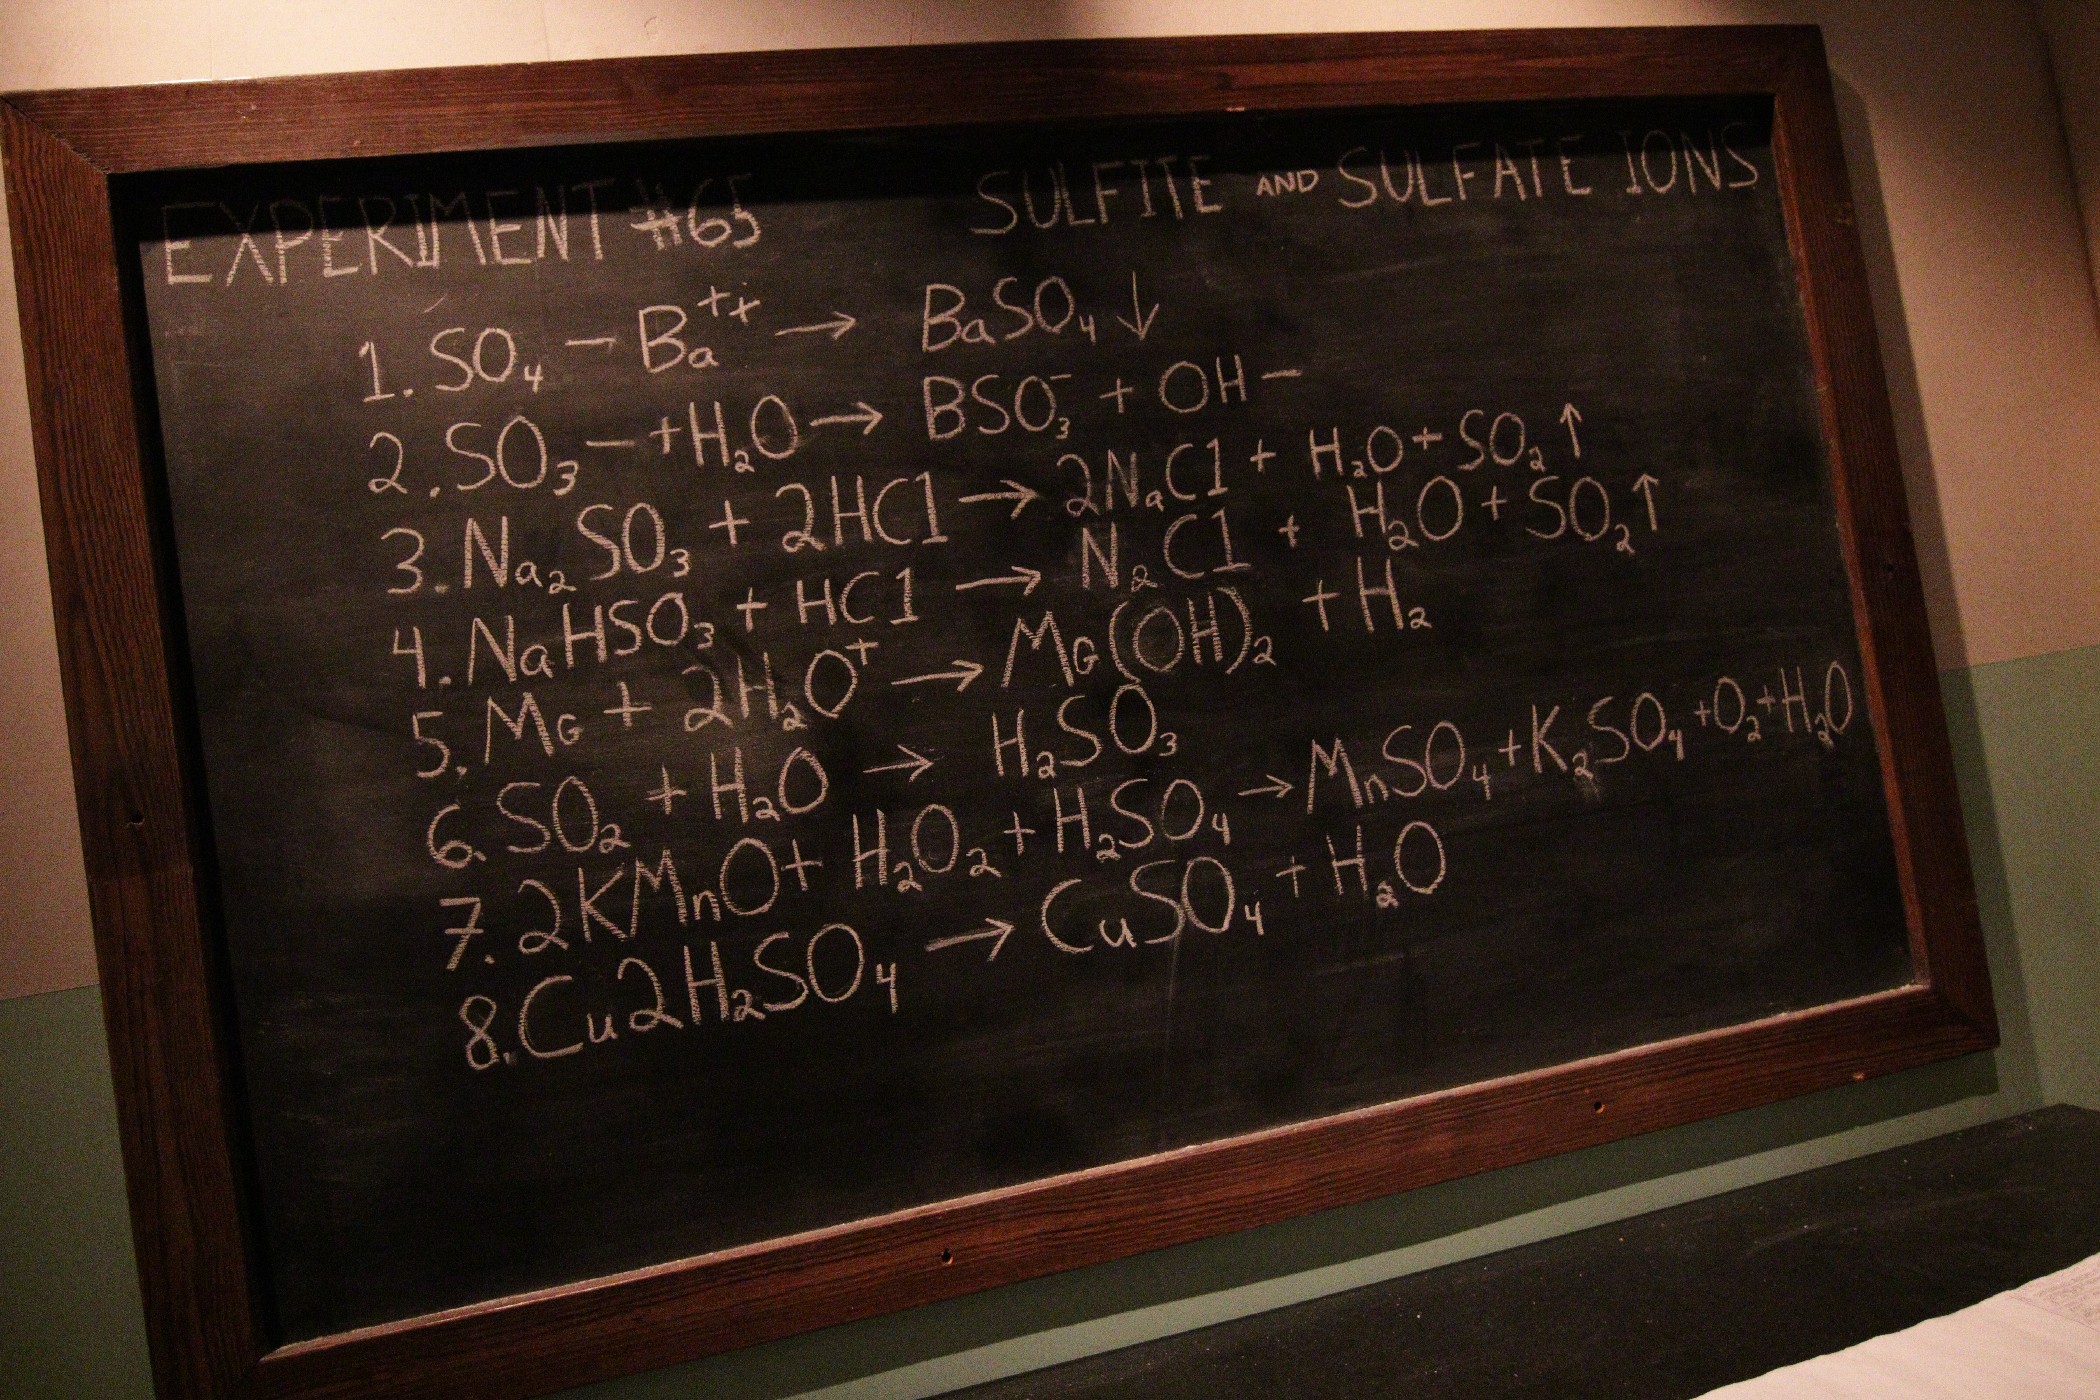 EXPERIMENT #65 SULFITE AND SULFATE IONS
1. SO₄ − Ba⁺⁺ → BaSO₄ ↓
2. SO₃ − +H₂O → BSO₃⁻ + OH −
3. Na₂SO₃ + 2HCl → 2NaCl + H₂O + SO₂ ↑
4. NaHSO₃ + HCl → N₂Cl + H₂O + SO₂ ↑
5. MG + 2H₂O⁺ → MG(OH)₂ + H₂
6. SO₂ + H₂O → H₂SO₃
7. 2KMnO + H₂O₂ + H₂SO₄ → MnSO₄ + K₂SO₄ + O₂ + H₂O
8. Cu2H₂SO₄ → CuSO₄ + H₂O